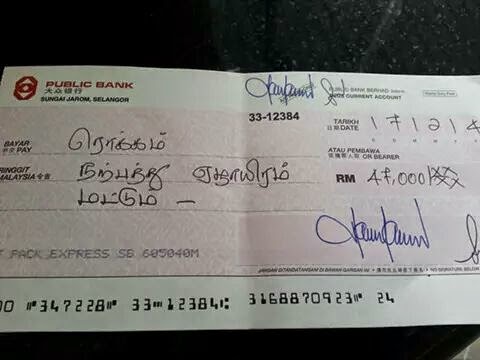 PUBLIC BANK
大众银行
SUNGAI JAROM, SELANGOR
PUBLIC BANK BERHAD
CURRENT ACCOUNT
33-12384
TARIKH
日期 DATE
171214
BAYAR
PAY
ரொக்கம்
ATAU PEMBAWA
OR BEARER
RINGGIT
MALAYSIA 令吉
நற்பத்து ஏழாயிரம்
மட்டும் —
RM 47,000
PACK EXPRESS SB 605040M
JANGAN DITANDATANGANI DI BAWAH GARISAN INI • NO SIGNATURE BELOW
347228 33 12384 3168870923 24